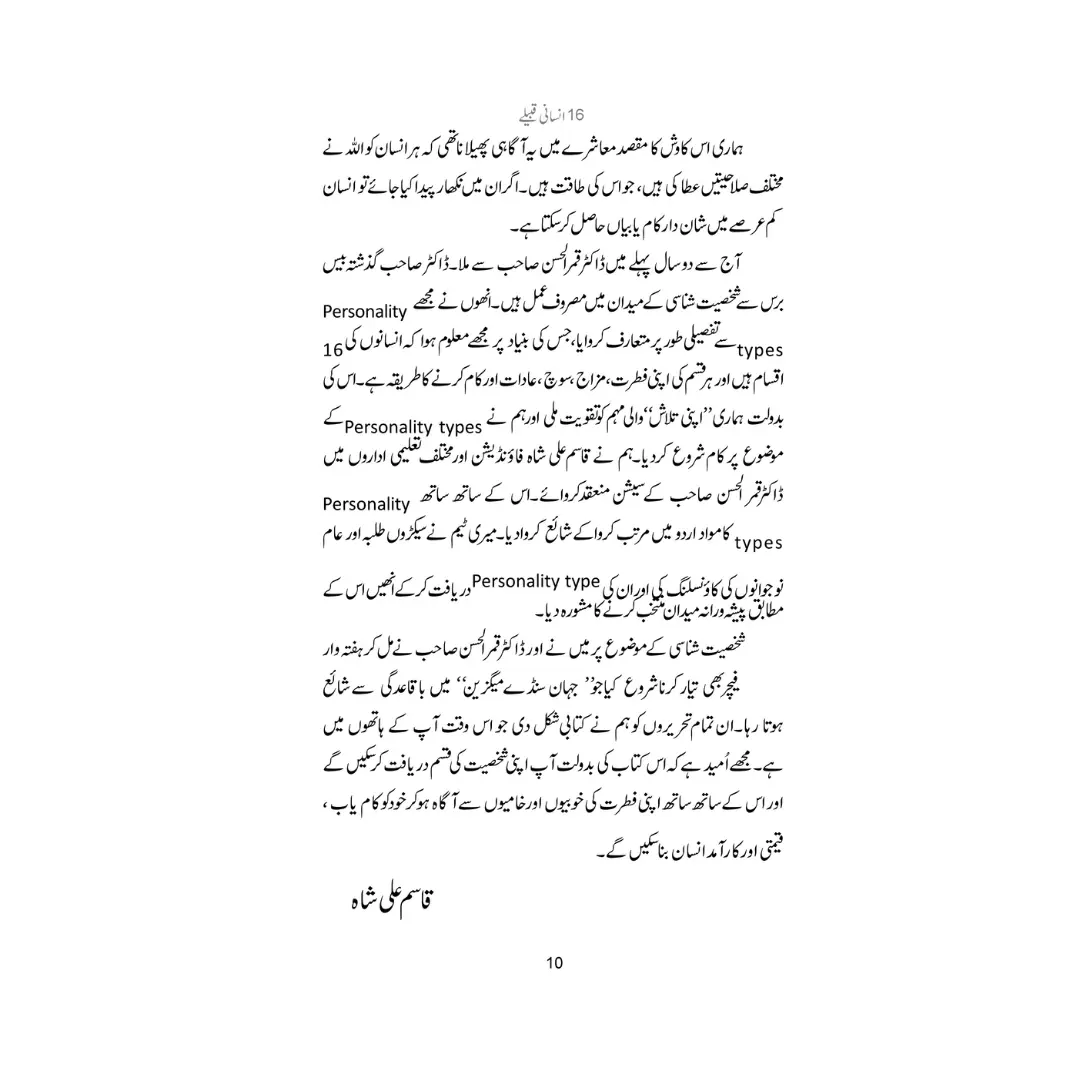 16 انسانی قبیلے
ہماری اس کاوش کا مقصد معاشرے میں یہ آگاہی پھیلانا تھی کہ ہر انسان کو اللہ نے
مختلف صلاحیتیں عطا کی ہیں، جو اس کی طاقت ہیں۔ اگر ان میں نکھار پیدا کیا جائے تو انسان
کم عرصے میں شان دار کام یابیاں حاصل کر سکتا ہے۔
آج سے دو سال پہلے میں ڈاکٹر قمر الحسن صاحب سے ملا۔ ڈاکٹر صاحب گذشتہ بیس
برس سے شخصیت شناسی کے میدان میں مصروف عمل ہیں۔ انھوں نے مجھے Personality
types سے تفصیلی طور پر متعارف کروایا، جس کی بنیاد پر مجھے معلوم ہوا کہ انسانوں کی 16
اقسام ہیں اور ہر قسم کی اپنی فطرت، مزاج، سوچ، عادات اور کام کرنے کا طریقہ ہے۔ اس کی
بدولت ہماری ’’اپنی تلاش‘‘ والی مہم کو تقویت ملی اور ہم نے Personality types کے
موضوع پر کام شروع کر دیا۔ ہم نے قاسم علی شاہ فاؤنڈیشن اور مختلف تعلیمی اداروں میں
ڈاکٹر قمر الحسن صاحب کے سیشن منعقد کروائے۔ اس کے ساتھ ساتھ Personality
types کا مواد اردو میں مرتب کروا کے شائع کروا دیا۔ میری ٹیم نے سیکڑوں طلبہ اور عام
نوجوانوں کی کاؤنسلنگ کی اور ان کی Personality type دریافت کر کے انھیں اس کے
مطابق پیشہ ورانہ میدان منتخب کرنے کا مشورہ دیا۔
شخصیت شناسی کے موضوع پر میں نے اور ڈاکٹر قمر الحسن صاحب نے مل کر ہفتہ وار
فیچر بھی تیار کرنا شروع کیا جو ’’جہان سنڈے میگزین‘‘ میں باقاعدگی سے شائع
ہوتا رہا۔ ان تمام تحریروں کو ہم نے کتابی شکل دی جو اس وقت آپ کے ہاتھوں میں
ہے۔ مجھے اُمید ہے کہ اس کتاب کی بدولت آپ اپنی شخصیت کی قسم دریافت کر سکیں گے
اور اس کے ساتھ ساتھ اپنی فطرت کی خوبیوں اور خامیوں سے آگاہ ہو کر خود کو کام یاب،
قیمتی اور کارآمد انسان بنا سکیں گے۔
قاسم علی شاہ
10